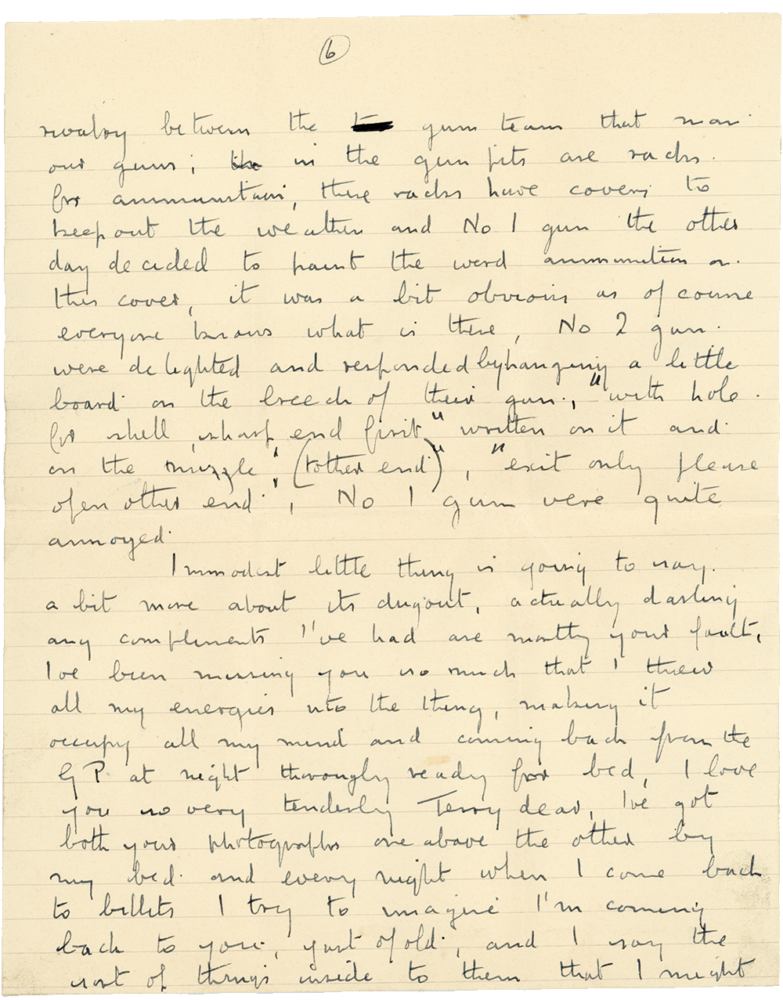 6
rivalry between the gun team that man
our guns; the in the gun pits are racks
for ammunition, these racks have covers to
keep out the weather and No 1 gun the other
day decided to paint the word ammunition on
this cover, it was a bit obvious as of course
everyone knows what is there, No 2 gun
were delighted and responded by hanging a little
board on the breech of their gun, "with hole
for shell, sharp end first" written on it and
on the muzzle, (tother end), "exit only please
open other end", No 1 gun were quite
annoyed.
Immodest little thing is going to say
a bit more about its dugout, actually darling
any compliments I've had are mostly your fault,
I've been missing you so much that I threw
all my energies into the thing, making it
occupy all my mind and coming back from the
G P. at night thoroughly ready for bed, I love
you so very tenderly Terry dear, I've got
both your photographs one above the other by
my bed and every night when I come back
to billets I try to imagine I'm coming
back to you, just of old, and I say the
sort of things inside to them that I might